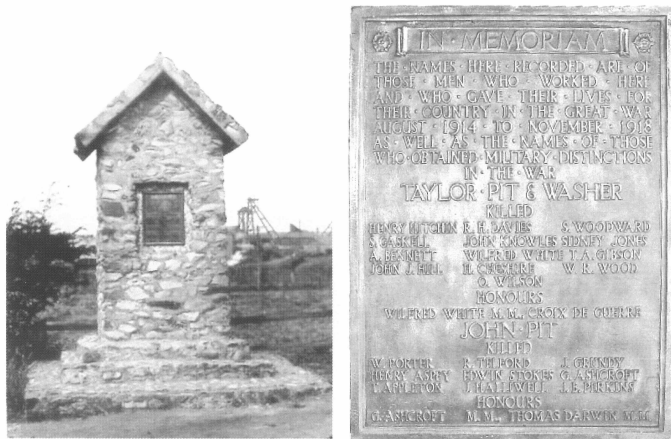 IN·MEMORIAM
THE·NAMES·HERE·RECORDED·ARE·OF
THOSE·MEN·WHO·WORKED·HERE
AND·WHO·GAVE·THEIR·LIVES·FOR
THEIR·COUNTRY·IN·THE·GREAT·WAR
AUGUST·1914·TO·NOVEMBER·1918
AS·WELL·AS·THE·NAMES·OF·THOSE
WHO·OBTAINED·MILITARY·DISTINCTIONS
IN·THE·WAR
TAYLOR·PIT & WASHER
KILLED
HENRY HITCHIN R. H. DAVIES S. WOODWARD
S. GASKELL JOHN KNOWLES SIDNEY JONES
A. BENNETT WILFRED WHITE T. A. GIBSON
JOHN J. HILL H. CHESHIRE W. R. WOOD
O. WILSON
HONOURS
WILFRED WHITE M.M., CROIX DE GUERRE
JOHN·PIT
KILLED
W. PORTER R. TELFORD J. GRUNDY
HENRY ASPEY EDWIN STOKES G. ASHCROFT
T. APPLETON J. HALLIWELL J. E. PERKINS
HONOURS
G. ASHCROFT M.M., THOMAS DARWIN M.M.